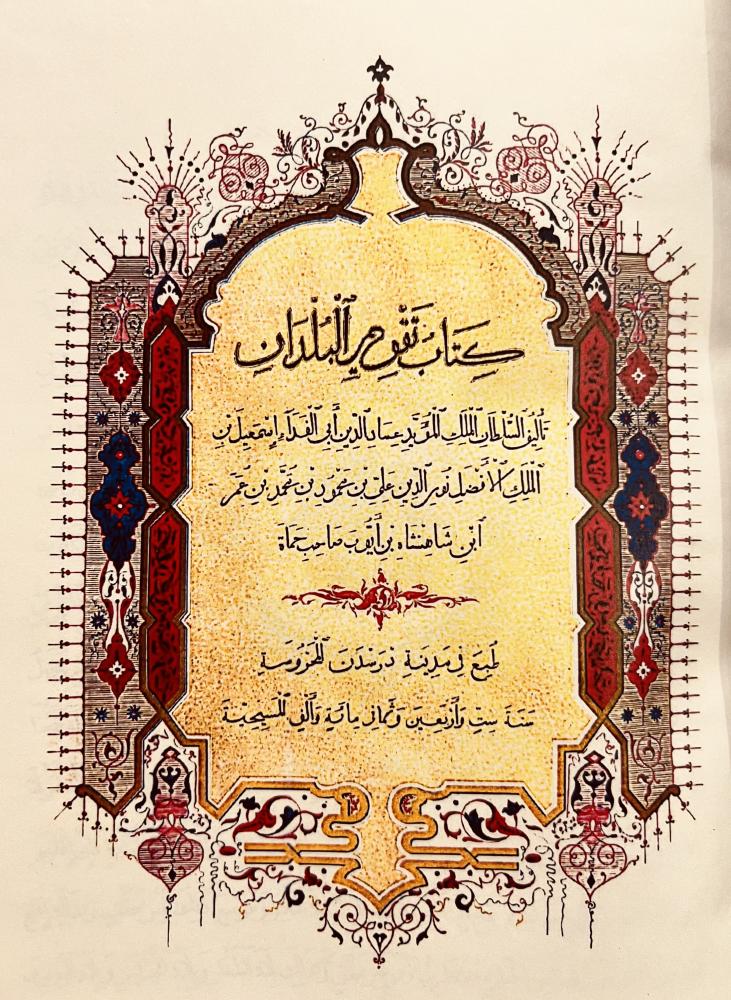 كِتَابُ تَقْوِيمِ الْبُلْدَانِ
تَأْلِيفُ السُّلْطَانِ الْمَلِكِ الْمُؤَيَّدِ عِمَادِ الدِّينِ أَبِي الْفِدَاءِ إِسْمَعِيلَ بْنِ
الْمَلِكِ الْأَفْضَلِ نُورِ الدِّينِ عَلِيِّ بْنِ مَحْمُودِ بْنِ مُحَمَّدِ بْنِ عُمَرَ
ابْنِ شَاهِنْشَاهِ بْنِ أَيُّوبَ صَاحِبِ حَمَاةَ
طُبِعَ فِي مَدِينَةِ دْرَسْدَنَ الْمَحْرُوسَةِ
سَنَةَ سِتٍّ وَأَرْبَعِينَ وَثَمَانِ مِائَةٍ وَأَلْفٍ الْمَسِيحِيَّةِ